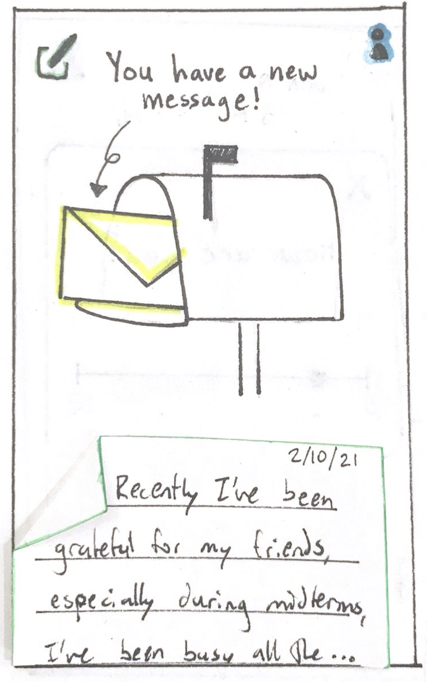 You have a new
message!
2/10/21
Recently I've been
grateful for my friends,
especially during midterms,
I've been busy all the...